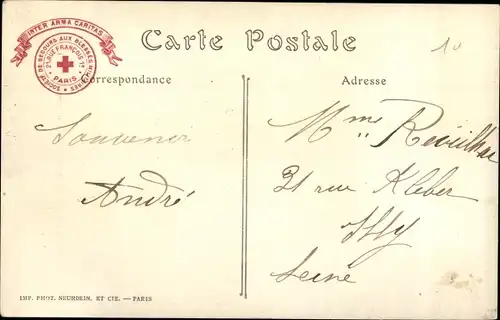 INTER ARMA CARITAS
SOCIÉTÉ DE SECOURS AUX BLESSÉS MILITAIRES
21, RUE FRANÇOIS 1er
PARIS
Carte Postale
10
Correspondance
Adresse
Souvenir
André
Mme
31 rue Kleber
Issy
Seine
IMP. PHOT. NEURDEIN, ET CIE. — PARIS